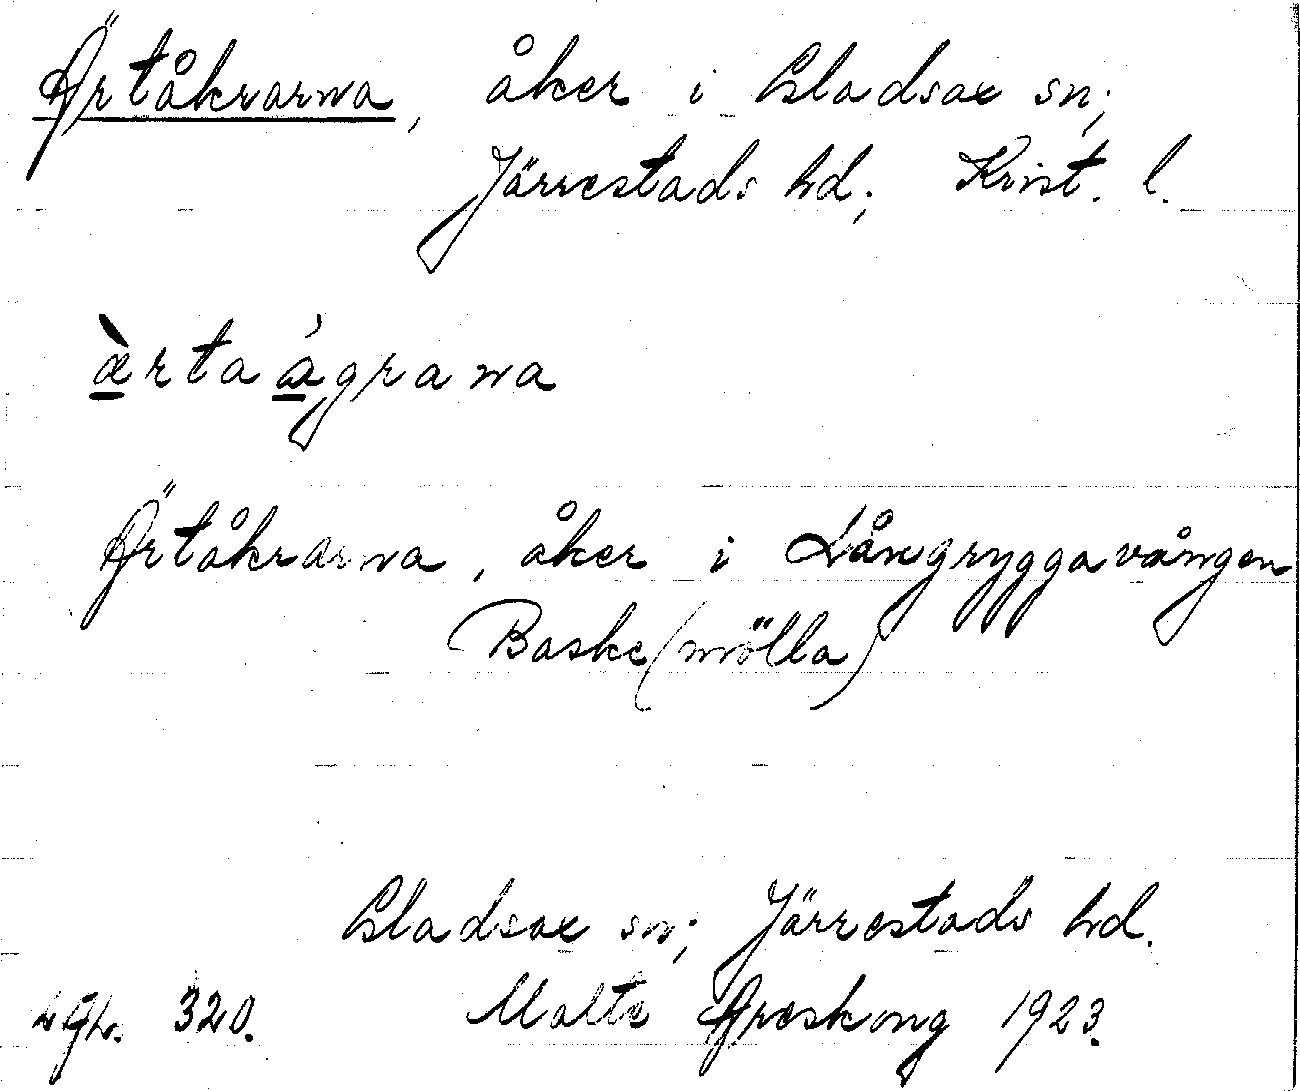 Örtåkrarna, åker i Gladsax sn;
Järrestads hd; Krist. l.
ærtaágrana
Örtåkrarna, åker i Långryggavången
Baske(mölla)
Gladsax sn; Järrestads hd.
320. Malte Areskoug 1923.